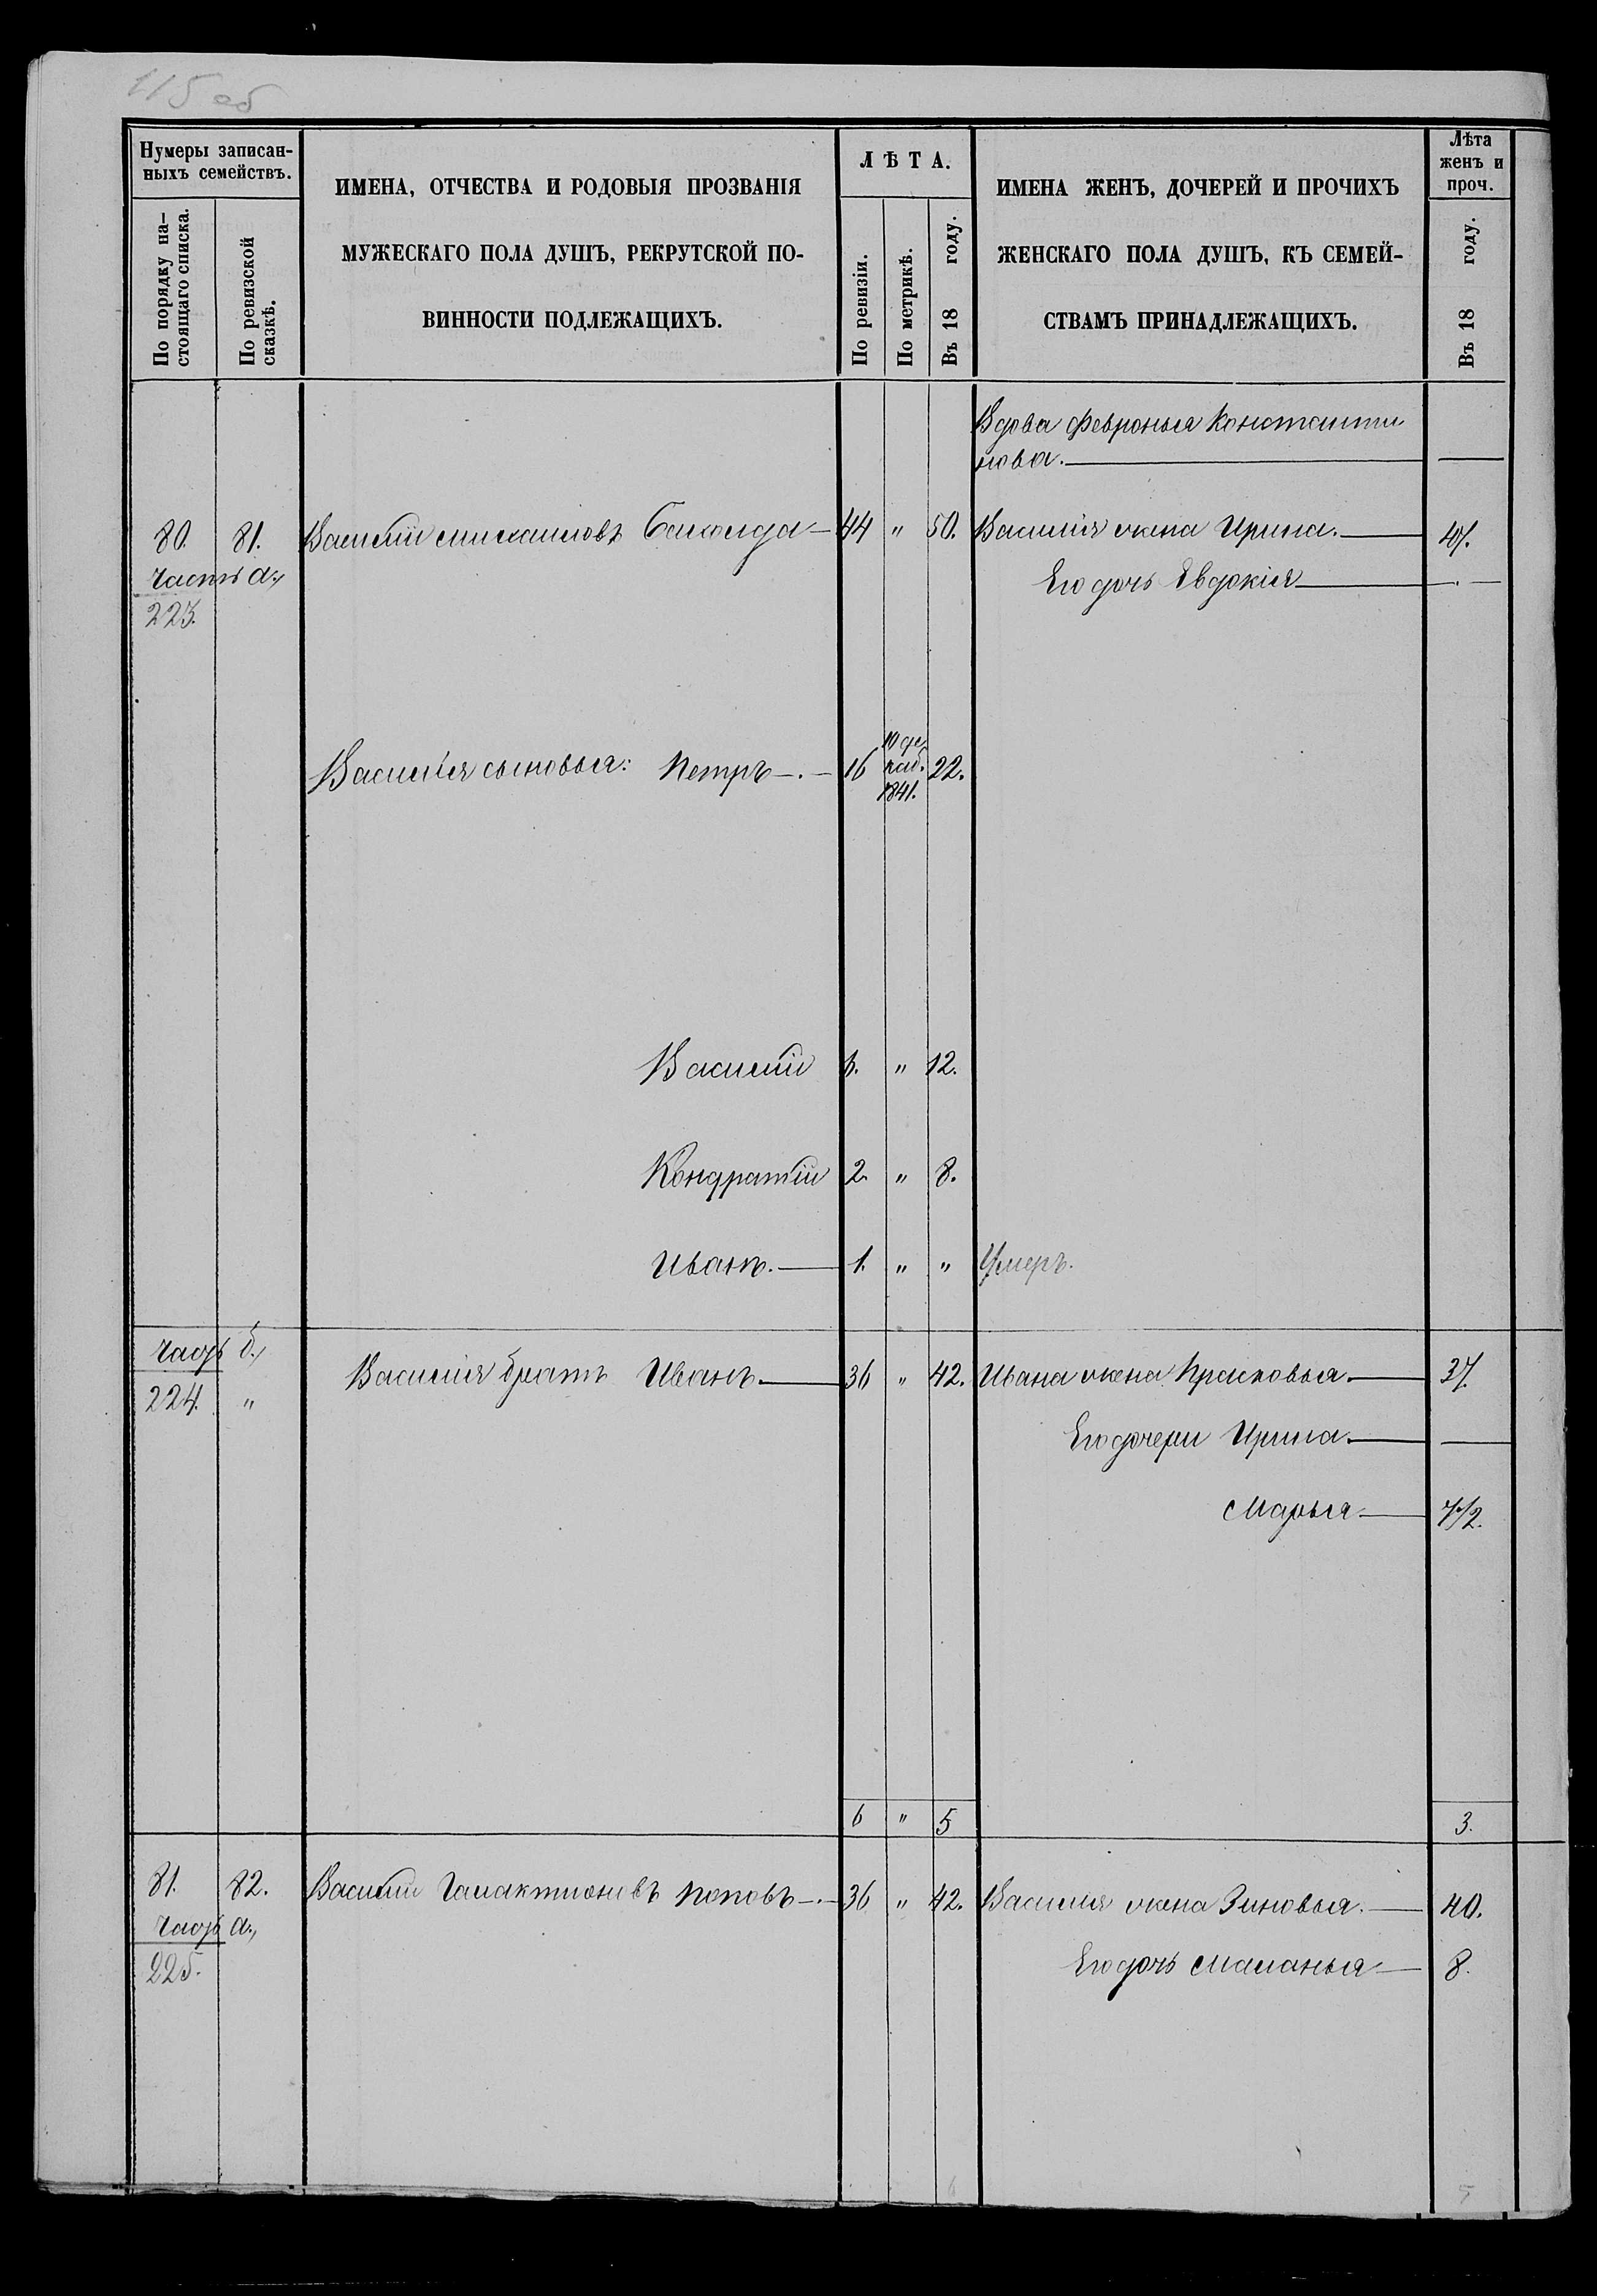 115 об
Нумеры записан-
ныхъ семействъ.
По порядку на-
стоящаго списка.
По ревизской
сказкѣ.
ИМЕНА, ОТЧЕСТВА И РОДОВЫЯ ПРОЗВАНІЯ
МУЖЕСКАГО ПОЛА ДУШЪ, РЕКРУТСКОЙ ПО-
ВИННОСТИ ПОДЛЕЖАЩИХЪ.
ЛѢТА.
По ревизіи.
По метрикѣ.
Въ 18 году.
ИМЕНА ЖЕНЪ, ДОЧЕРЕЙ И ПРОЧИХЪ
ЖЕНСКАГО ПОЛА ДУШЪ, КЪ СЕМЕЙ-
СТВАМЪ ПРИНАДЛЕЖАЩИХЪ.
Лѣта
женъ и
проч.
Въ 18 году.
Вдова Февронья Константи
нова. —
80. 81. Василій Михаиловъ — 44 " 50. Василія жена Ирина. —
часть а.,
Его дочь Евдокія —
223.
Василія сыновья: Петръ — 16 10 де каб. 1841. 22.
Василій 6. " 12.
Кондратій 2. " 8.
Иванъ. — 1. " " Умеръ.
часть б.,
224. "
Василія братъ Иванъ. — 36 " 42. Ивана жена Прасковья. — 37.
Его дочери Ирина. —
Марья —
6 " 5 3.
81. 82. Василій Галактионовъ Поповъ — 36 " 42. Василія жена Зиновья. — 40.
часть а.,
225.
Его дочь Маланья — 8.
6 5